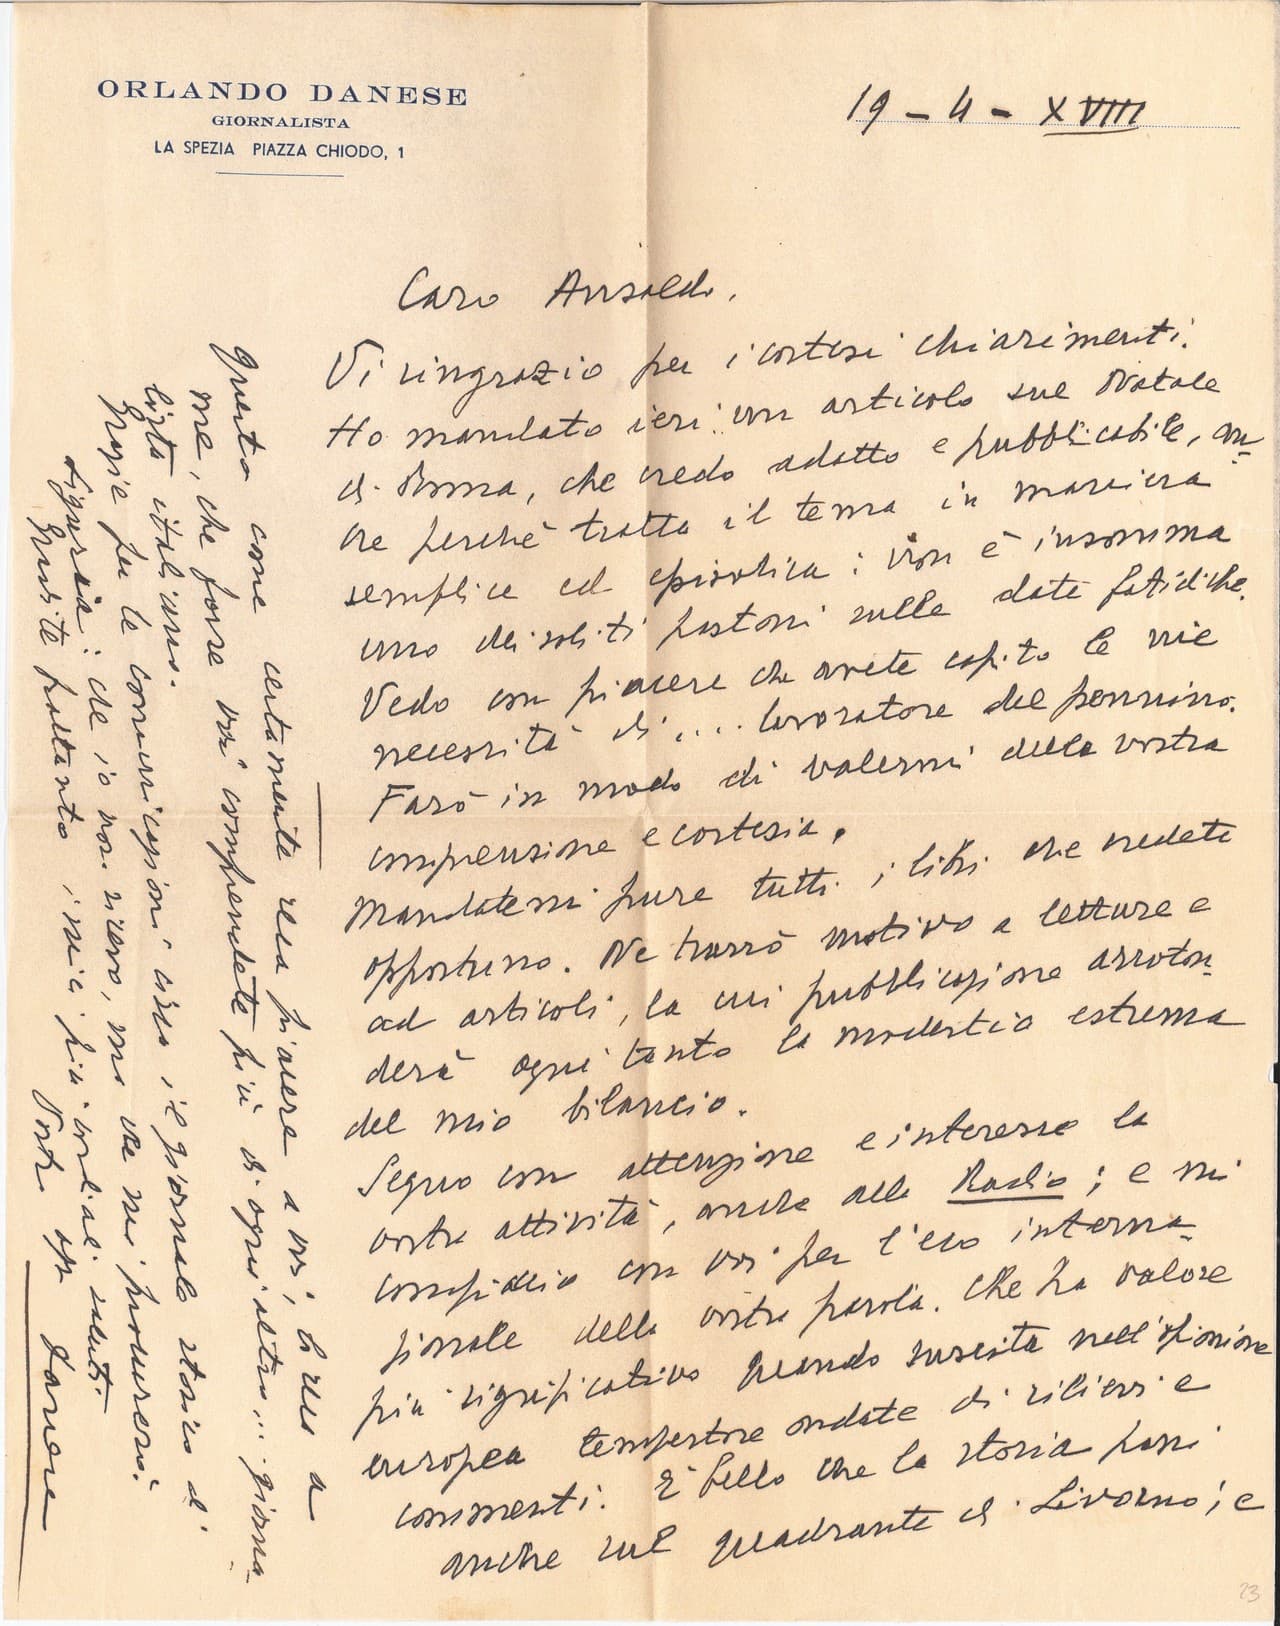 ORLANDO DANESE
GIORNALISTA
LA SPEZIA PIAZZA CHIODO, 1
19 - 4 - XVIII
Caro Ansaldo,
Vi ringrazio per i cortesi chiarimenti.
Ho mandato ieri un articolo sul Natale
di Roma, che credo adatto e pubblicabile, an-
che perchè tratta il tema in maniera
semplice ed episodica: non è insomma
uno dei soliti pastoni sulle date fatidiche.
Vedo con piacere che avete capito le mie
necessità di .... lavoratore del pennino.
Farò in modo di valermi della vostra
comprensione e cortesia.
Mandatemi pure tutti i libri che credete
opportuno. Ne trarrò motivo a letture e
ad articoli, la cui pubblicazione arroton-
derà ogni tanto la modestia estrema
del mio bilancio.
Seguo con attenzione e interesse la
vostra attività, anche alla Radio; e mi
compiaccio con voi per l'eco interna-
zionale della vostra parola. Che ha valore
più significativo quando suscita nell'opinione
europea tempestose ondate di rilievi e
commenti. È bello che la storia passi
anche sul quadrante di Livorno; e
questo come certamente reca piacere a voi, lo reca a
me, che forse voi comprendete più di ogni altro... giorna-
lista italiano.
Grazie per le comunicazioni circa il giornale storico di
Liguria: che io non ricevo, ma che mi procurerò.
Gradite frattanto i miei più cordiali saluti.
Vostro aff Danese
23